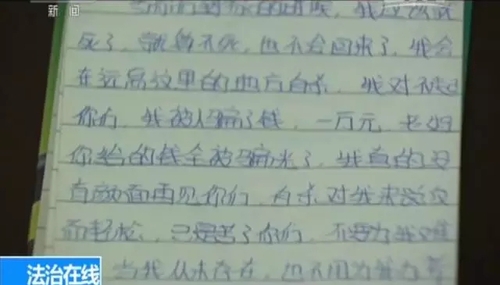 新闻
当你们看到的时候，我应该说
死了，就算不死，也不会回来了，我会
在远离这里的地方自杀，我对不起
你们，我被人骗了钱，一万元，老妈
你给的钱全被骗光了，我真的没
有颜面再见你们，自杀对我来说反
而轻松，只是苦了你们，不要为我难
当我从未存在，也不用为我
法治在线